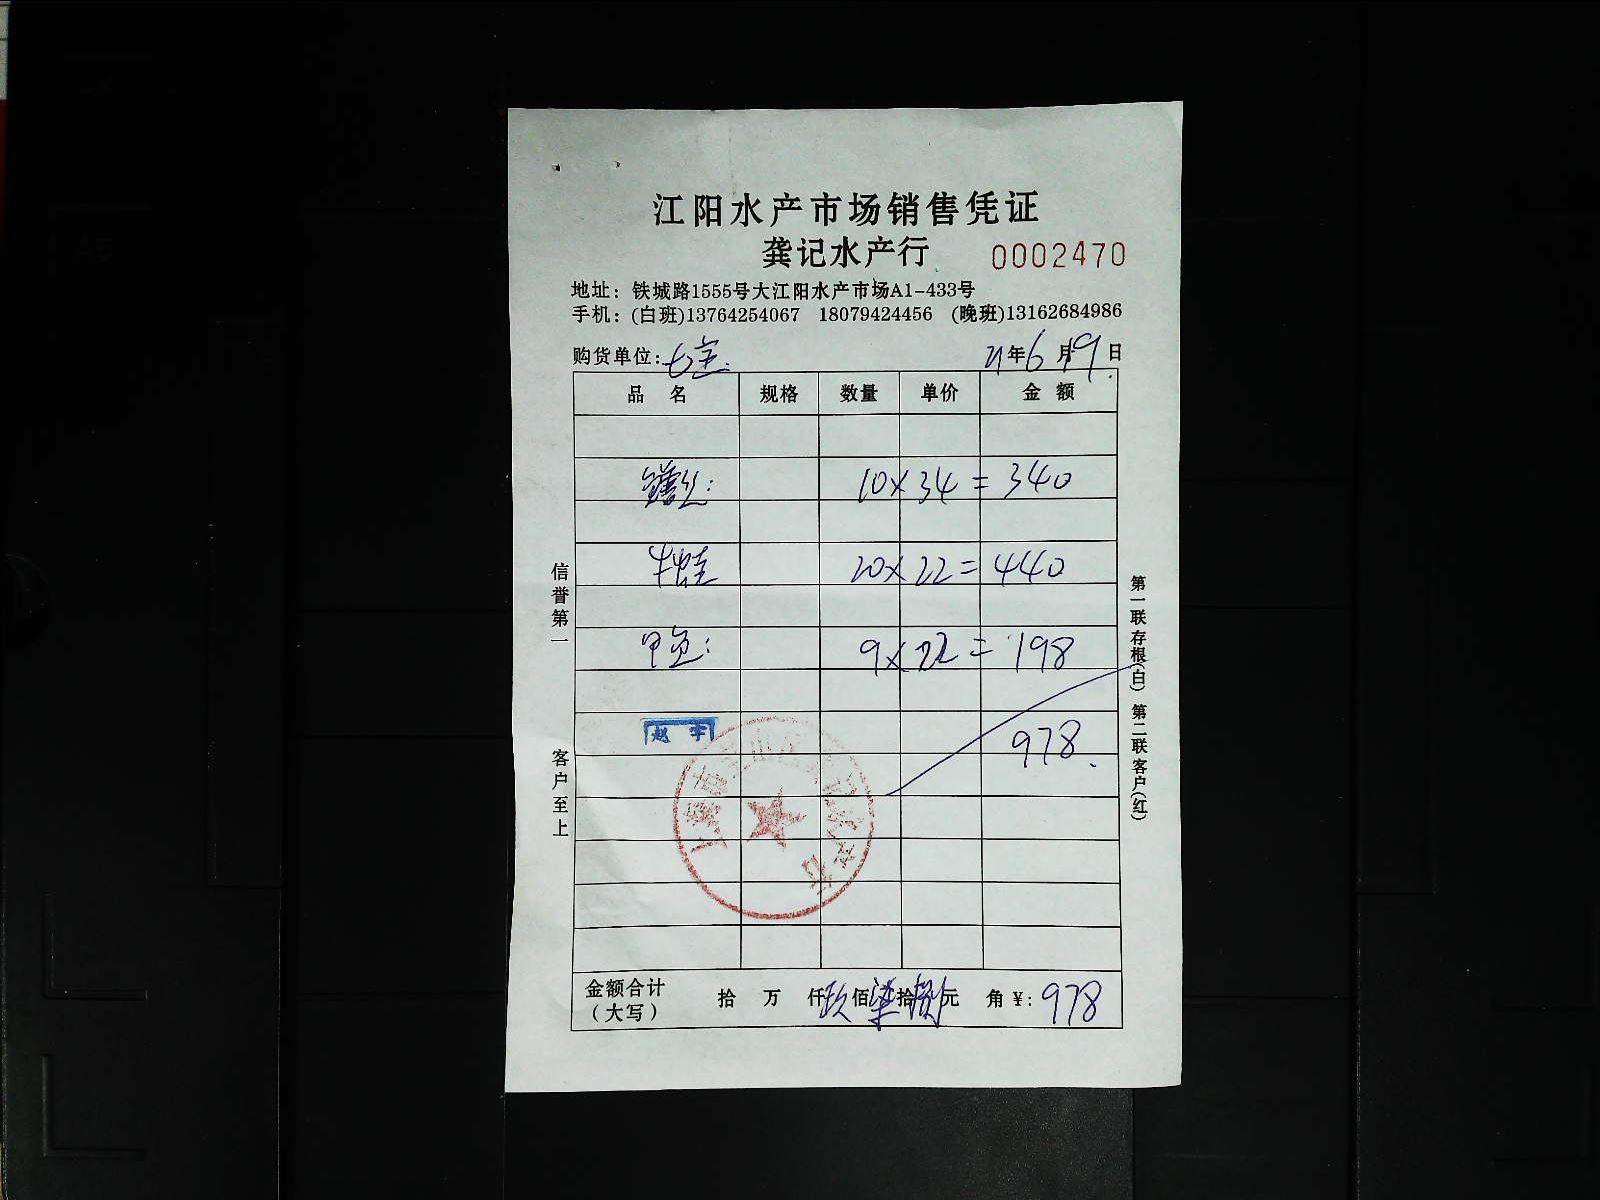 江阳水产市场销售凭证
龚记水产行 0002470
地址：铁城路1555号大江阳水产市场A1-433号
手机：(白班)13764254067 18079424456 (晚班)13162684986
购货单位：七宝. 21年6月19日
品名 规格 数量 单价 金额
鳝丝： 10×34=340
牛蛙 20×22=440
甲鱼： 9×22=198
赵 宇
978.
金额合计 拾 万 仟玖佰柒拾捌元 角¥:978
（大写）
信誉第一
客户至上
第一联存根(白) 第二联客户(红)